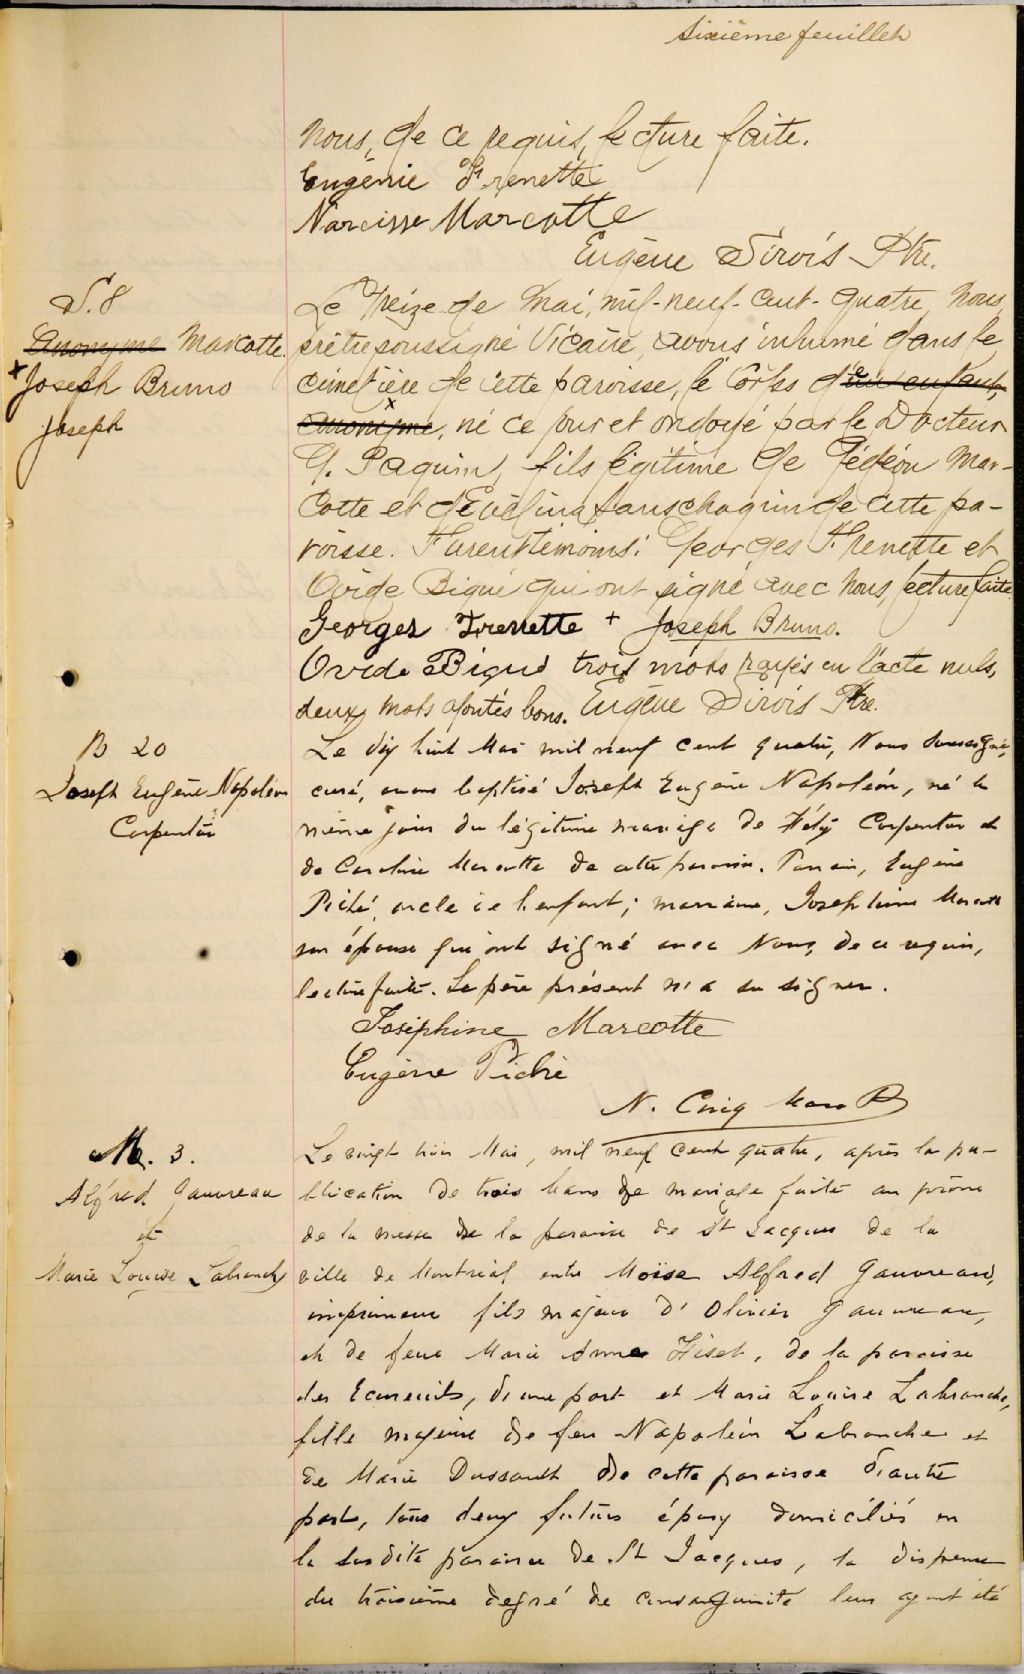 Sixième feuillet
nous, de ce requis, lecture faite.
Eugénie Frenette
Narcisse Marcotte
Eugène Sirois Ptre.
S. 8
Anonyme Marcotte
x Joseph Bruno
Joseph
Le treize de Mai, mil-neuf-cent-quatre, nous,
prêtre soussigné Vicaire, avons inhumé dans le
cimetière de cette paroisse, le corps d'un enfant
anonyme x, né ce jour et ondoyé par le Docteur
Paquin, fils légitime de Gédéon Mar-
cotte et d'Evélina Sanschagrin de cette pa-
roisse. Furent témoins: Georges Frenette et
Ovide Bigué qui ont signé avec nous, lecture faite.
Georges Frenette + Joseph Bruno.
Ovide Bigué trois mots rayés en l'acte nuls,
deux mots ajoutés bons. Eugène Sirois Ptre.
B 20
Joseph Eugène Napoléon
Carpentier
Le dix huit Mai mil neuf cent quatre, Nous soussigné,
curé, avons baptisé Joseph Eugène Napoléon, né le
même jour du légitime mariage de Carpentier et
de Caroline Marcotte de cette paroisse. Parrain, Eugène
Piché, oncle de l'enfant; marraine, Josephine Marcotte
son épouse qui ont signé avec Nous, de ce requis,
lecture faite. Le père présent n'a su signer.
Joséphine Marcotte
Eugène Piché
N. Cinq Mars P
M. 3.
Alfred Gauvreau
et
Marie Louise Labranche
Le vingt trois Mai, mil neuf cent quatre, après la pu-
blication de trois bans de mariage faite au prône
de la messe de la paroisse de St Jacques de la
ville de Montréal entre Moïse Alfred Gauvreau,
imprimeur fils majeur d'Olivier Gauvreau,
et de feue Marie Anne Fiset, de la paroisse
des Ecureuils, d'une part et Marie Louise Labranche,
fille majeure de feu Napoléon Labranche et
de Marie Dussault de cette paroisse d'autre
part, tous deux futurs époux domiciliés en
la susdite paroisse de St Jacques, la dispense
du troisième degré de consanguinité leur ayant été